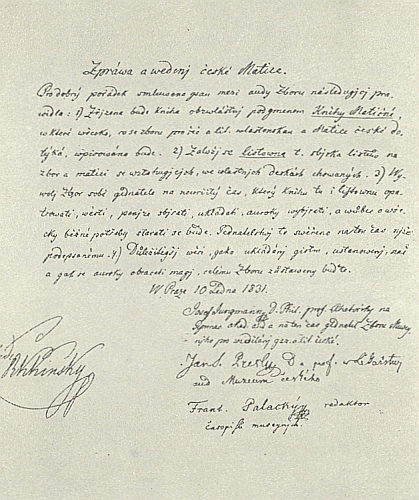 Zpráwa a wedenj české Matice.
Pro dobrý pořádek smluwena gsau mezi audy Zboru následugjcj pra-
widla: 1) Zřjzena bude kniha obzwláštnj pod gmenem Knihy Matičné,
w které wšecko, co se zboru pro řeč a lit. wlastenskau a Matice české do-
týká, wpisowáno bude. 2) Založj se listowna t. sbjrka listůw na
zbor a matici se wztahugjcjch, we wlastnjch deskách chowaných. 3) Wy-
wolj Zbor sobě gednatele na neurčitý čas, který knihu tu i listownu opa-
trowati, wésti, penjze sbjrati, ukládati, auroky wybjrati, a wůbec o wše-
cky běžné potřeby starati se bude. Gednatelstwj to swěřeno na ten čas njže
podepsanému. 4) Důležitěgšj wěci, gako ukládánj gistin, ustanowenj, nač
a gak se auroky obraceti magj, celému Zboru zůstaweny buďte.
W Praze 10 Ledna 1831.
Josef Jungmann, D. Phil. prof. 
Gymnas. akad. aud a na ten čas gednatel Zboru Musey-
nýho pro wzdělánj řeči a lit. české.
Jan S. Presl, D. a prof. w. 
aud Museum českého
Frant. Palacký, redaktor
časopisů museynjch.
Kinský